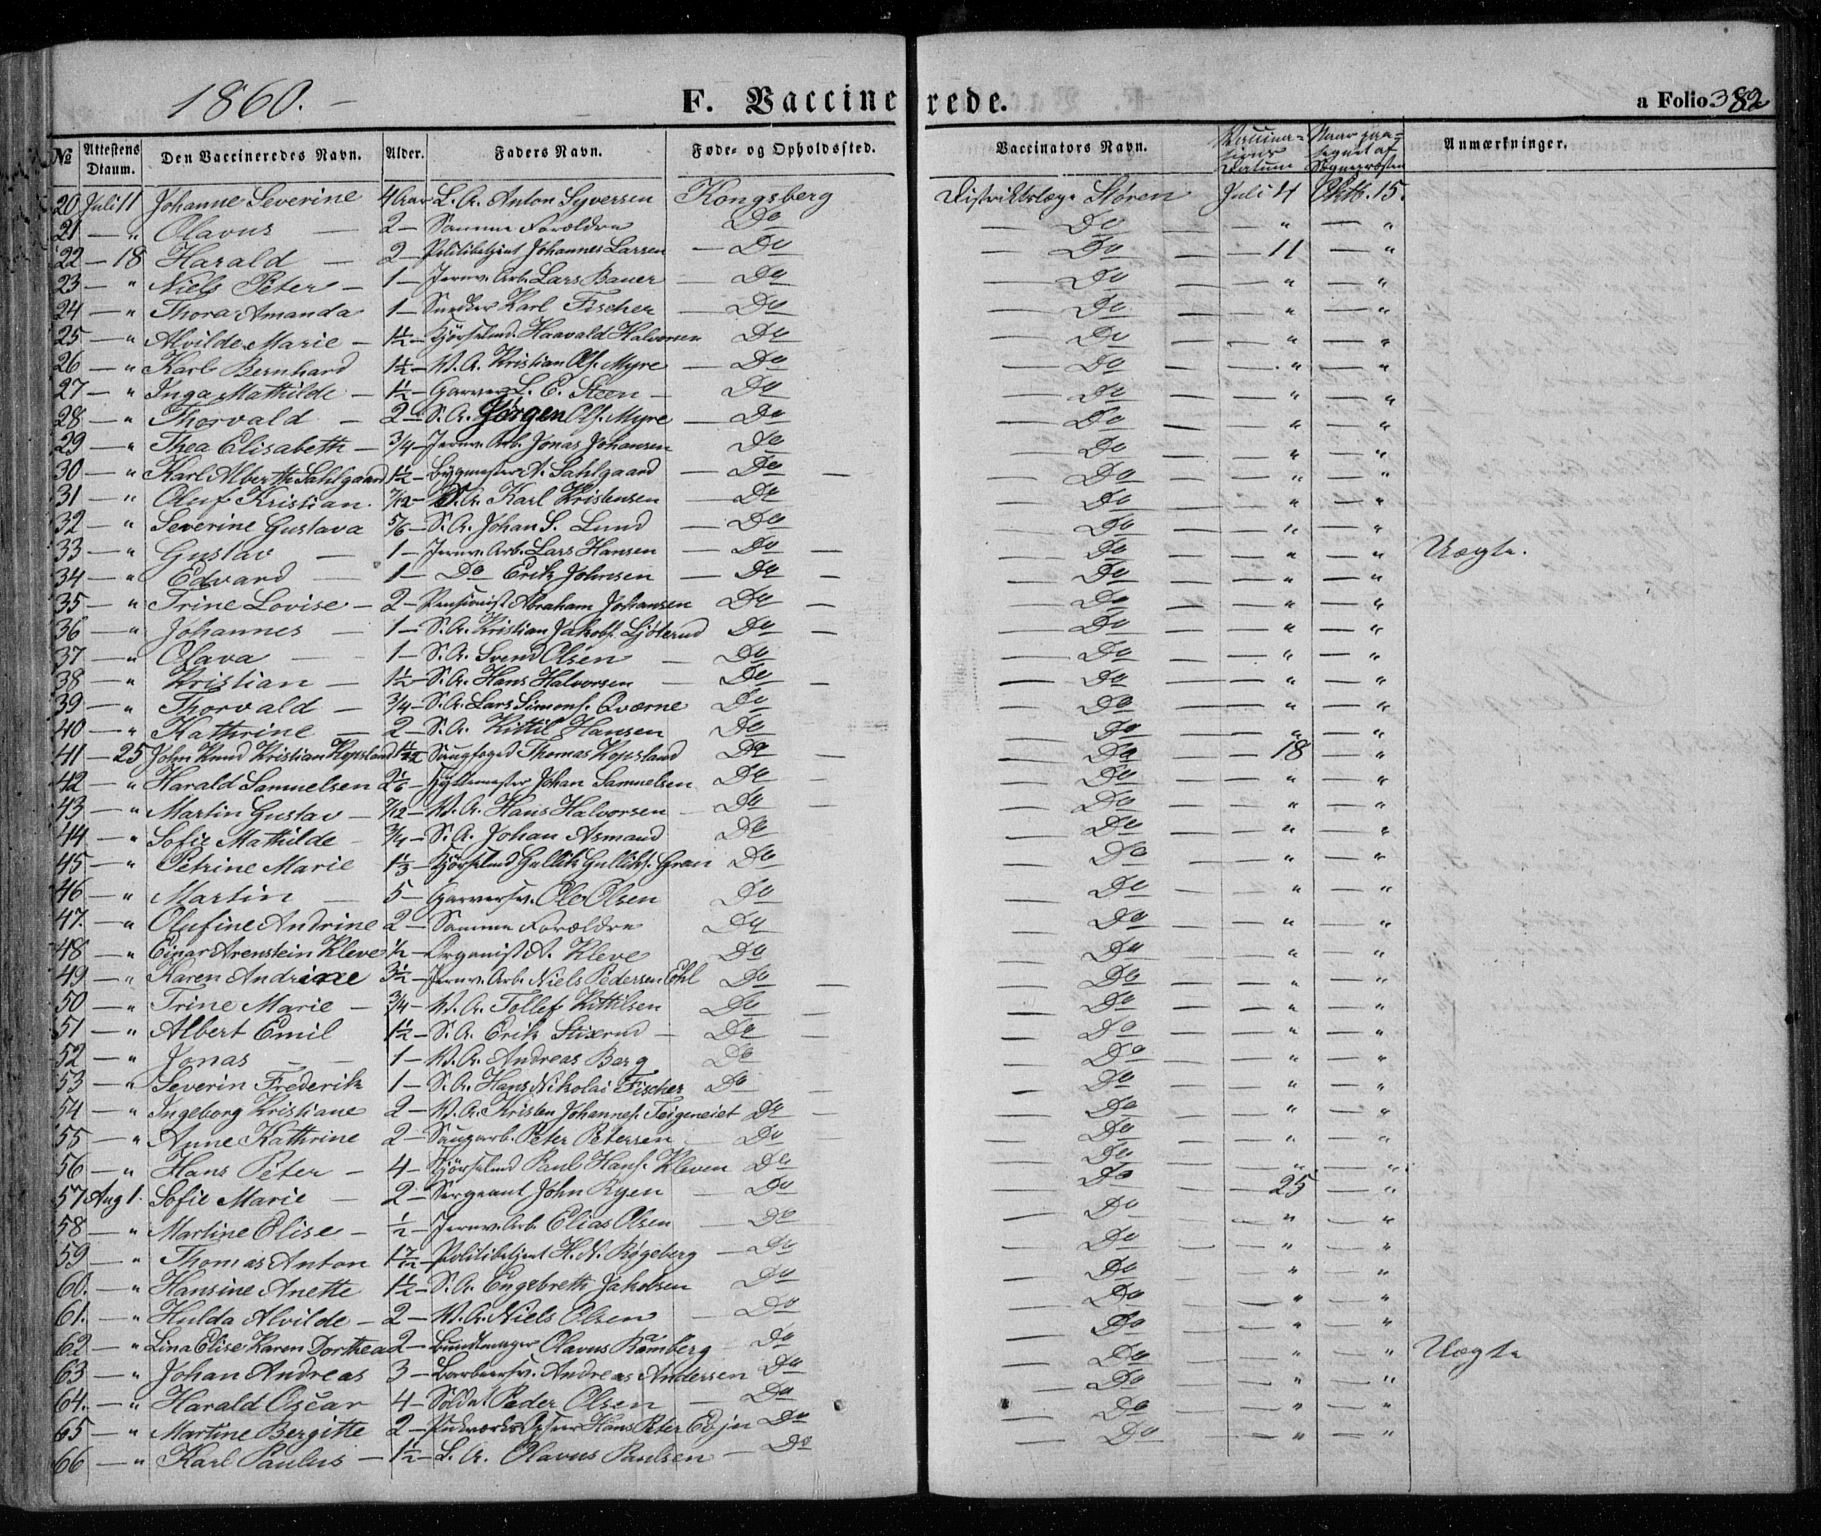 1860. — F. Vaccinerede. a Folio. 382
No Attestens Dtaum. Den Vaccineredes Navn. Alder. Faders Navn. Føde- og Opholdssted. Vaccinators Navn. Vaccinationens Datum Naar paategnet af Sognepresten Anmærkninger.
20 Juli 11 Johanne Severine 4 Aar L. A. Anton Syversen Kongsberg Distriktslæge Støren Juli 4 Oktb. 15.
21 — " Olavus — 2 — Samme Forældre Do — Do — " — "
22 — 18 Harald — 2 — Politibetjent Johannes Larsen — Do — Do — 11 — "
23 — " Niels Peter — 1 — Jernv. Arb. Lars Bauer — Do — Do — " — "
24 — " Thora Amanda 1 — Snedker Karl Fischer — Do — Do — " — "
25 — " Alvilde Marie — 1½ — Kjørselmd. Haavald Halvorsen Do — Do — " — "
26 — " Karl Bernhard 1½ — V. A. Kristian Ols. Myre — Do — Do — " — "
27 — " Inga Mathilde — 1½ — Garver L. E. Steen — Do — Do — " — "
28 — " Thorvald — 2 — S. A. Jørgen Ols. Myre — Do — Do — " — "
29 — " Thea Elisabeth — 3/4 — Jernv. Arb. Jonas Johansen Do — Do — " — "
30 — " Karl Alberth Sahlgaard 1½ — Bygmester A. Sahlgaard — Do — — Do — " — "
31 — " Oluf Kristian. 7/12 — S. A. Karl Kristensen — Do — Do — " — "
32 — " Severine Gustava 5/6 — S. A. Johan S. Lund — Do — Do — " — "
33 — " Gustav — 1 — Jernv. Arb. Lars Hansen — Do — — Do — " — " Uægte.
34 — " Edvard — 1 — Do Erik Johnsen — Do — — Do — " — "
35 — " Trine Lovise — 2 — Pensionist Abraham Johansen Do — — Do — " — "
36 — " Johannes — 1 — S. A. Kristian Jakobs. Do — — Do — " — "
37 — " Olava — 1 — S. A. Svend Olsen — Do — Do — " — "
38 — " Kristian — 1½ — S. A. Hans Halvorsen — Do — — Do — " — "
39 — " Thorvald — 3/4 — S. A. Lars Simons. Qværne Do — Do — " — "
40 — " Kathrine — 2 — S. A. Kittil Hansen Do — Do — " — "
41 — 25 John Knud Kristian Kopsland Thomas Kopsland Do — Do — 18 — "
42 — " Harald Samuelsen Hyttemester Johan Samuelsen Do — Do — " — "
43 — " Martin Gustav — 7/12 — V. A. Hans Halvorsen — Do — Do — " — "
44 — " Sofie Mathilde 3/4 — S. A. Johan Asmand Do — Do — " — "
45 — " Petrine Marie 1⅓ — Kjørselmd Gullik Gulliks. Gran Do — Do — " — "
46 — " Martin — 5 — Garversv. Ole Olsen Do — Do — " — "
47. — " Olufine Andrine 2 — Samme Forældre Do — Do — " — "
48 — " Einar Arenstein Kleve ½ — Organist A. Kleve Do — Do — " — "
49 — " Karen Andrine 3½ — Jernv. Arb. Niels Pedersen Do — — Do — " — "
50 — " Trine Marie — 3/4 — V. A. Tollef Kittilsen Do — — Do — " — "
51 — " Albert Emil 1½ — S. A. Erik Stixrud — Do — — Do — " — "
52 — " Jonas — 1 — V. A. Andreas Berg Do — Do — " — "
53 — " Severin Frederik 1 — S. A. Hans Nikolai Fischer Do — — Do — " — "
54 — " Ingeborg Kristiane 2 — V. A. Kristen Johannes. Teigeneiet Do — — Do — " — "
55 — " Anne Kathrine 2 — Peter Petersen Do — Do — " — "
56 — " Hans Peter — 4 — Kjørselmd Paul Hans. Kleven Do — Do — " — "
57 Aug 1. Sofie Marie — 2 — Sergeant John Ryen — Do — Do — 25 — "
58 — " Martine Elise — ½ — Jernv. Arb. Elias Olsen — Do — Do — " — "
59 — " Thomas Anton 1 7/12 — Politibetjent H. N. Bøgeberg — Do — Do — " — "
60. — " Hansine Anette 1½ — S. A. Engebreth Jakobsen Do — Do — " — "
61. — " Hulda Alvilde — 2 — V. A. Niels Olsen — Do — Do — " — "
62 — " Lina Elise Karen Dorthea 2 — Bundtmager Olavus Ramberg — Do — Do — " — " Uægte
63 — " Johan Andreas 3 — Andreas Andersen Do — Do — " — "
64. — " Harald Oscar 4 — Soldat Peder Olsen — Do — Do — " — "
65 — " Martine Bergitte 2 — Hans Peter Do — Do — " — "
66 — " Karl Paulus — 1½ — L. A. Olavus Paulsen — Do — Do — " — "